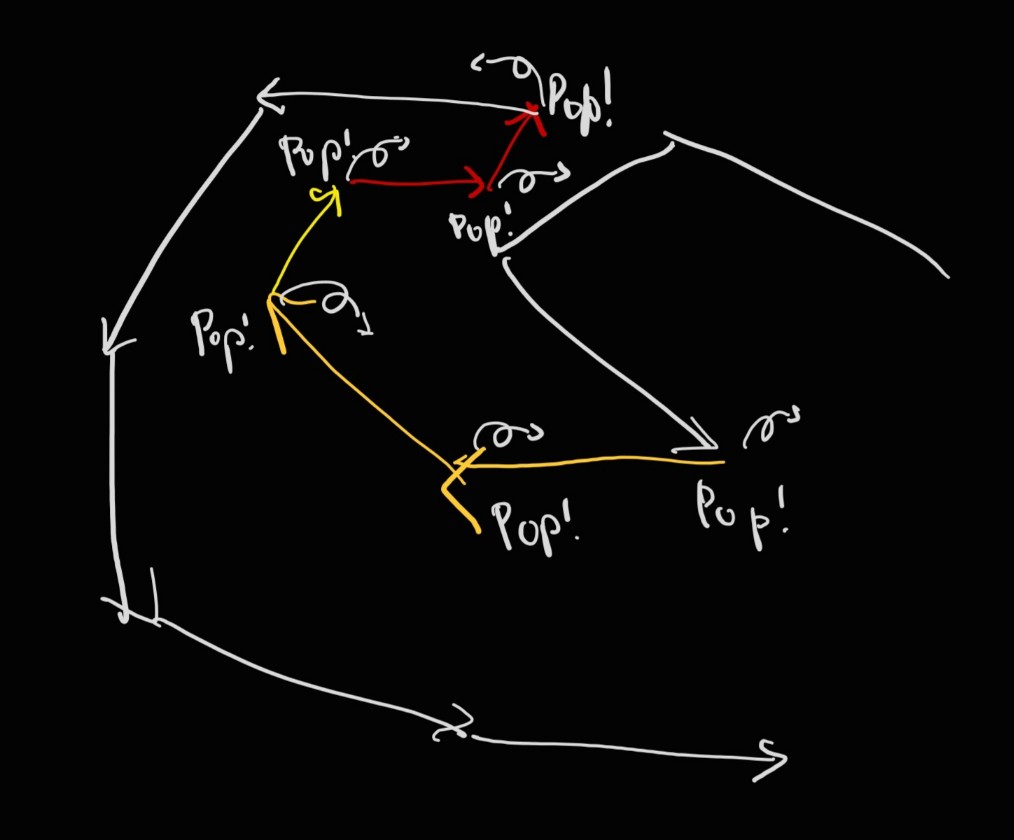 Pop!
Pop!
Pop!
Pop!
Pop!
Pop!